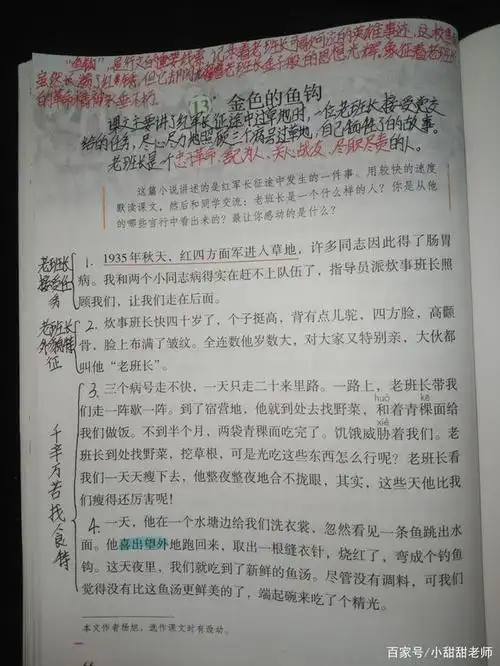 "鱼钩"是行文的重要线索,记录着老班长可歌可泣的英雄事迹,这枚鱼钩
虽然长满了红锈,但它却闪烁着老班长金子般的思想光辉,象征着老班长
的革命精神永垂不朽。
13 金色的鱼钩
课文主要讲了红军长征途中过草地时,一位老班长接受党交
给的任务,尽心尽力地照顾三个病号过草地,自己牺牲了的故事。
老班长是个忠于革命、舍己为人、关心战友、尽职尽责的人。
这篇小说讲述的是红军长征途中发生的一件事。用较快的速度
默读课文,然后和同学交流:老班长是一个什么样的人?你是从他
的哪些言行中看出来的?最让你感动的是什么?
老班长接受任务
1. 1935年秋天,红四方面军进入草地,许多同志因此得了肠胃
病。我和两个小同志病得实在赶不上队伍了,指导员派炊事班长照
顾我们,让我们走在后面。
老班长外貌特征
2. 炊事班长快四十岁了,个子挺高,背有点儿驼,四方脸,高颧
骨,脸上布满了皱纹。全连数他岁数大,对大家又特别亲,大伙都
叫他“老班长”。
千辛万苦找食物
3. 三个病号走不快,一天只走二十来里路。一路上,老班长带我
们走一阵歇一阵。到了宿营地,他就到处去找野菜,和着青稞面给
huò kē
我们做饭。不到半个月,两袋青稞面吃完了。饥饿威胁着我们。老
xié
班长到处找野菜,挖草根,可是光吃这些东西怎么行呢?老班长看
我们一天天瘦下去,他整夜整夜地合不拢眼,其实,这些天他比我
们瘦得还厉害呢!
4. 一天,他在一个水塘边给我们洗衣裳,忽然看见一条鱼跳出水
面。他喜出望外地跑回来,取出一根缝衣针,烧红了,弯成个钓鱼
钩。这天夜里,我们就吃到了新鲜的鱼汤。尽管没有调料,可我们
觉得没有比这鱼汤更鲜美的了,端起碗来吃了个精光。
本文作者杨旭,选作课文时有改动。
百家号/小甜甜老师